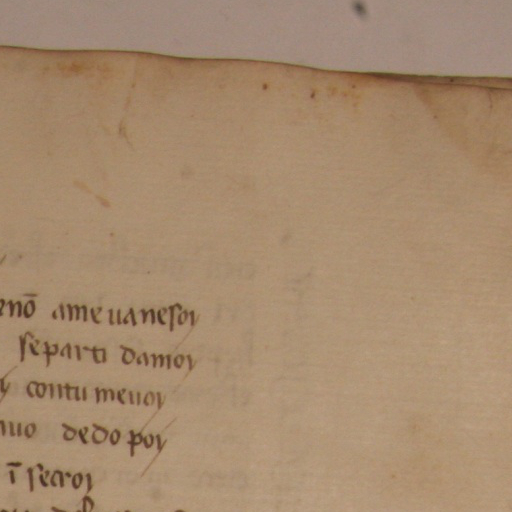 enō ame uanesoi
separti damoi
contu meuoi
nuo dedo poi
ī secroi